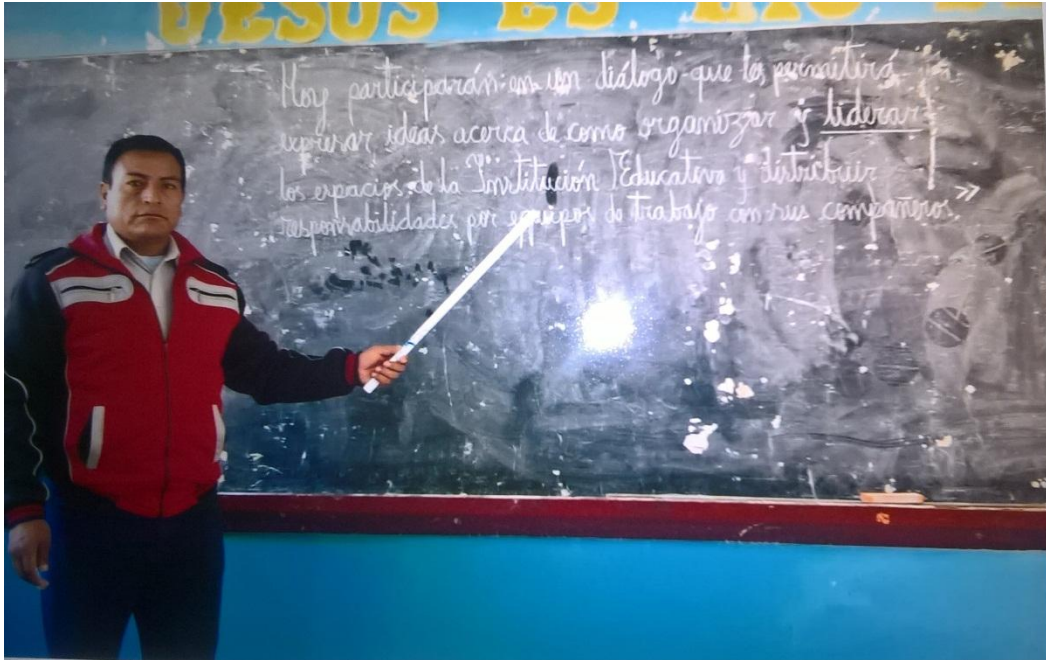 JESUS ES
Hoy participarán en un diálogo que les permitirá
expresar ideas acerca de como organizar y liderar
los espacios de la Institución Educativa y distribuir
responsabilidades por equipos de trabajo con sus compañeros.”